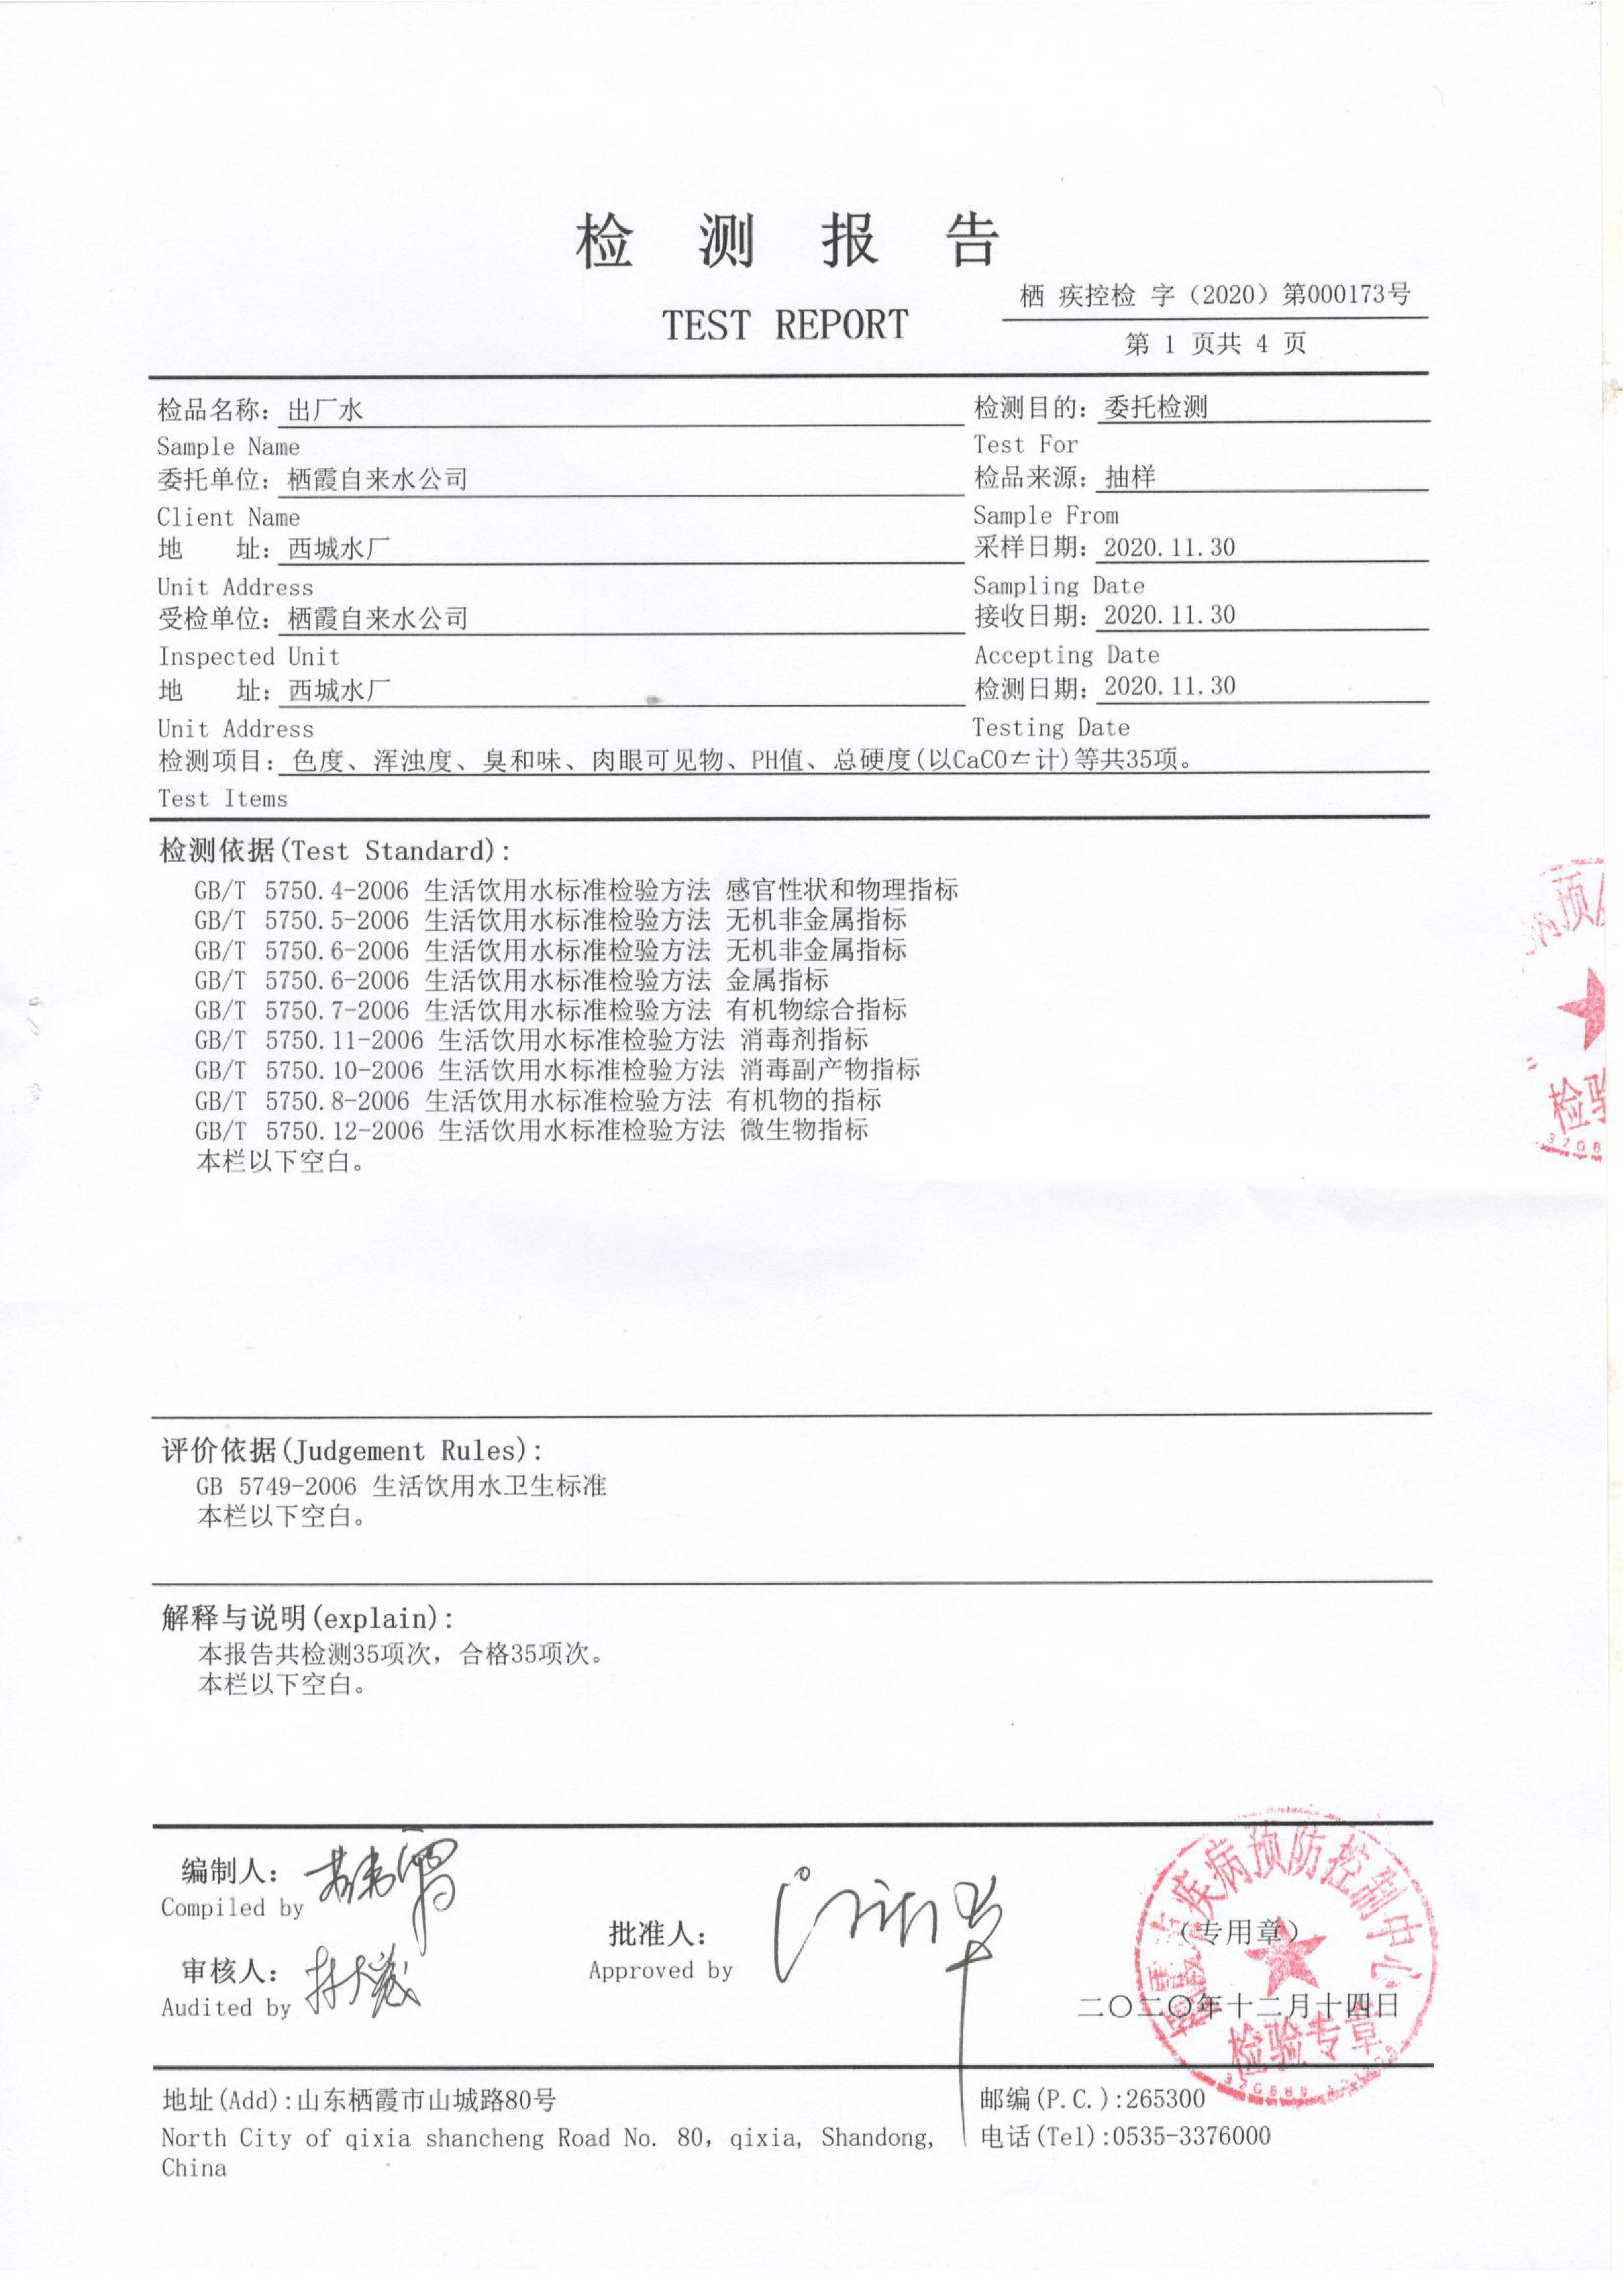 检 测 报 告
TEST REPORT
栖 疾控检 字（2020）第000173号
第 1 页共 4 页
检品名称: 出厂水
检测目的: 委托检测
Sample Name
Test For
委托单位: 栖霞自来水公司
检品来源: 抽样
Client Name
Sample From
地 址: 西城水厂
采样日期: 2020.11.30
Unit Address
Sampling Date
受检单位: 栖霞自来水公司
接收日期: 2020.11.30
Inspected Unit
Accepting Date
地 址: 西城水厂
检测日期: 2020.11.30
Unit Address
Testing Date
检测项目: 色度、浑浊度、臭和味、肉眼可见物、PH值、总硬度(以CaCO 计)等共35项。
Test Items
检测依据(Test Standard):
GB/T 5750.4-2006 生活饮用水标准检验方法 感官性状和物理指标
GB/T 5750.5-2006 生活饮用水标准检验方法 无机非金属指标
GB/T 5750.6-2006 生活饮用水标准检验方法 无机非金属指标
GB/T 5750.6-2006 生活饮用水标准检验方法 金属指标
GB/T 5750.7-2006 生活饮用水标准检验方法 有机物综合指标
GB/T 5750.11-2006 生活饮用水标准检验方法 消毒剂指标
GB/T 5750.10-2006 生活饮用水标准检验方法 消毒副产物指标
GB/T 5750.8-2006 生活饮用水标准检验方法 有机物的指标
GB/T 5750.12-2006 生活饮用水标准检验方法 微生物指标
本栏以下空白。
评价依据(Judgement Rules):
GB 5749-2006 生活饮用水卫生标准
本栏以下空白。
解释与说明(explain):
本报告共检测35项次，合格35项次。
本栏以下空白。
编制人:
Compiled by
审核人:
Audited by
批准人:
Approved by
疾病预防控制中心
（专用章）
二〇二〇年十二月十四日
检验专章
地址(Add):山东栖霞市山城路80号
邮编(P.C.):265300
North City of qixia shancheng Road No. 80, qixia, Shandong,
China
电话(Tel):0535-3376000